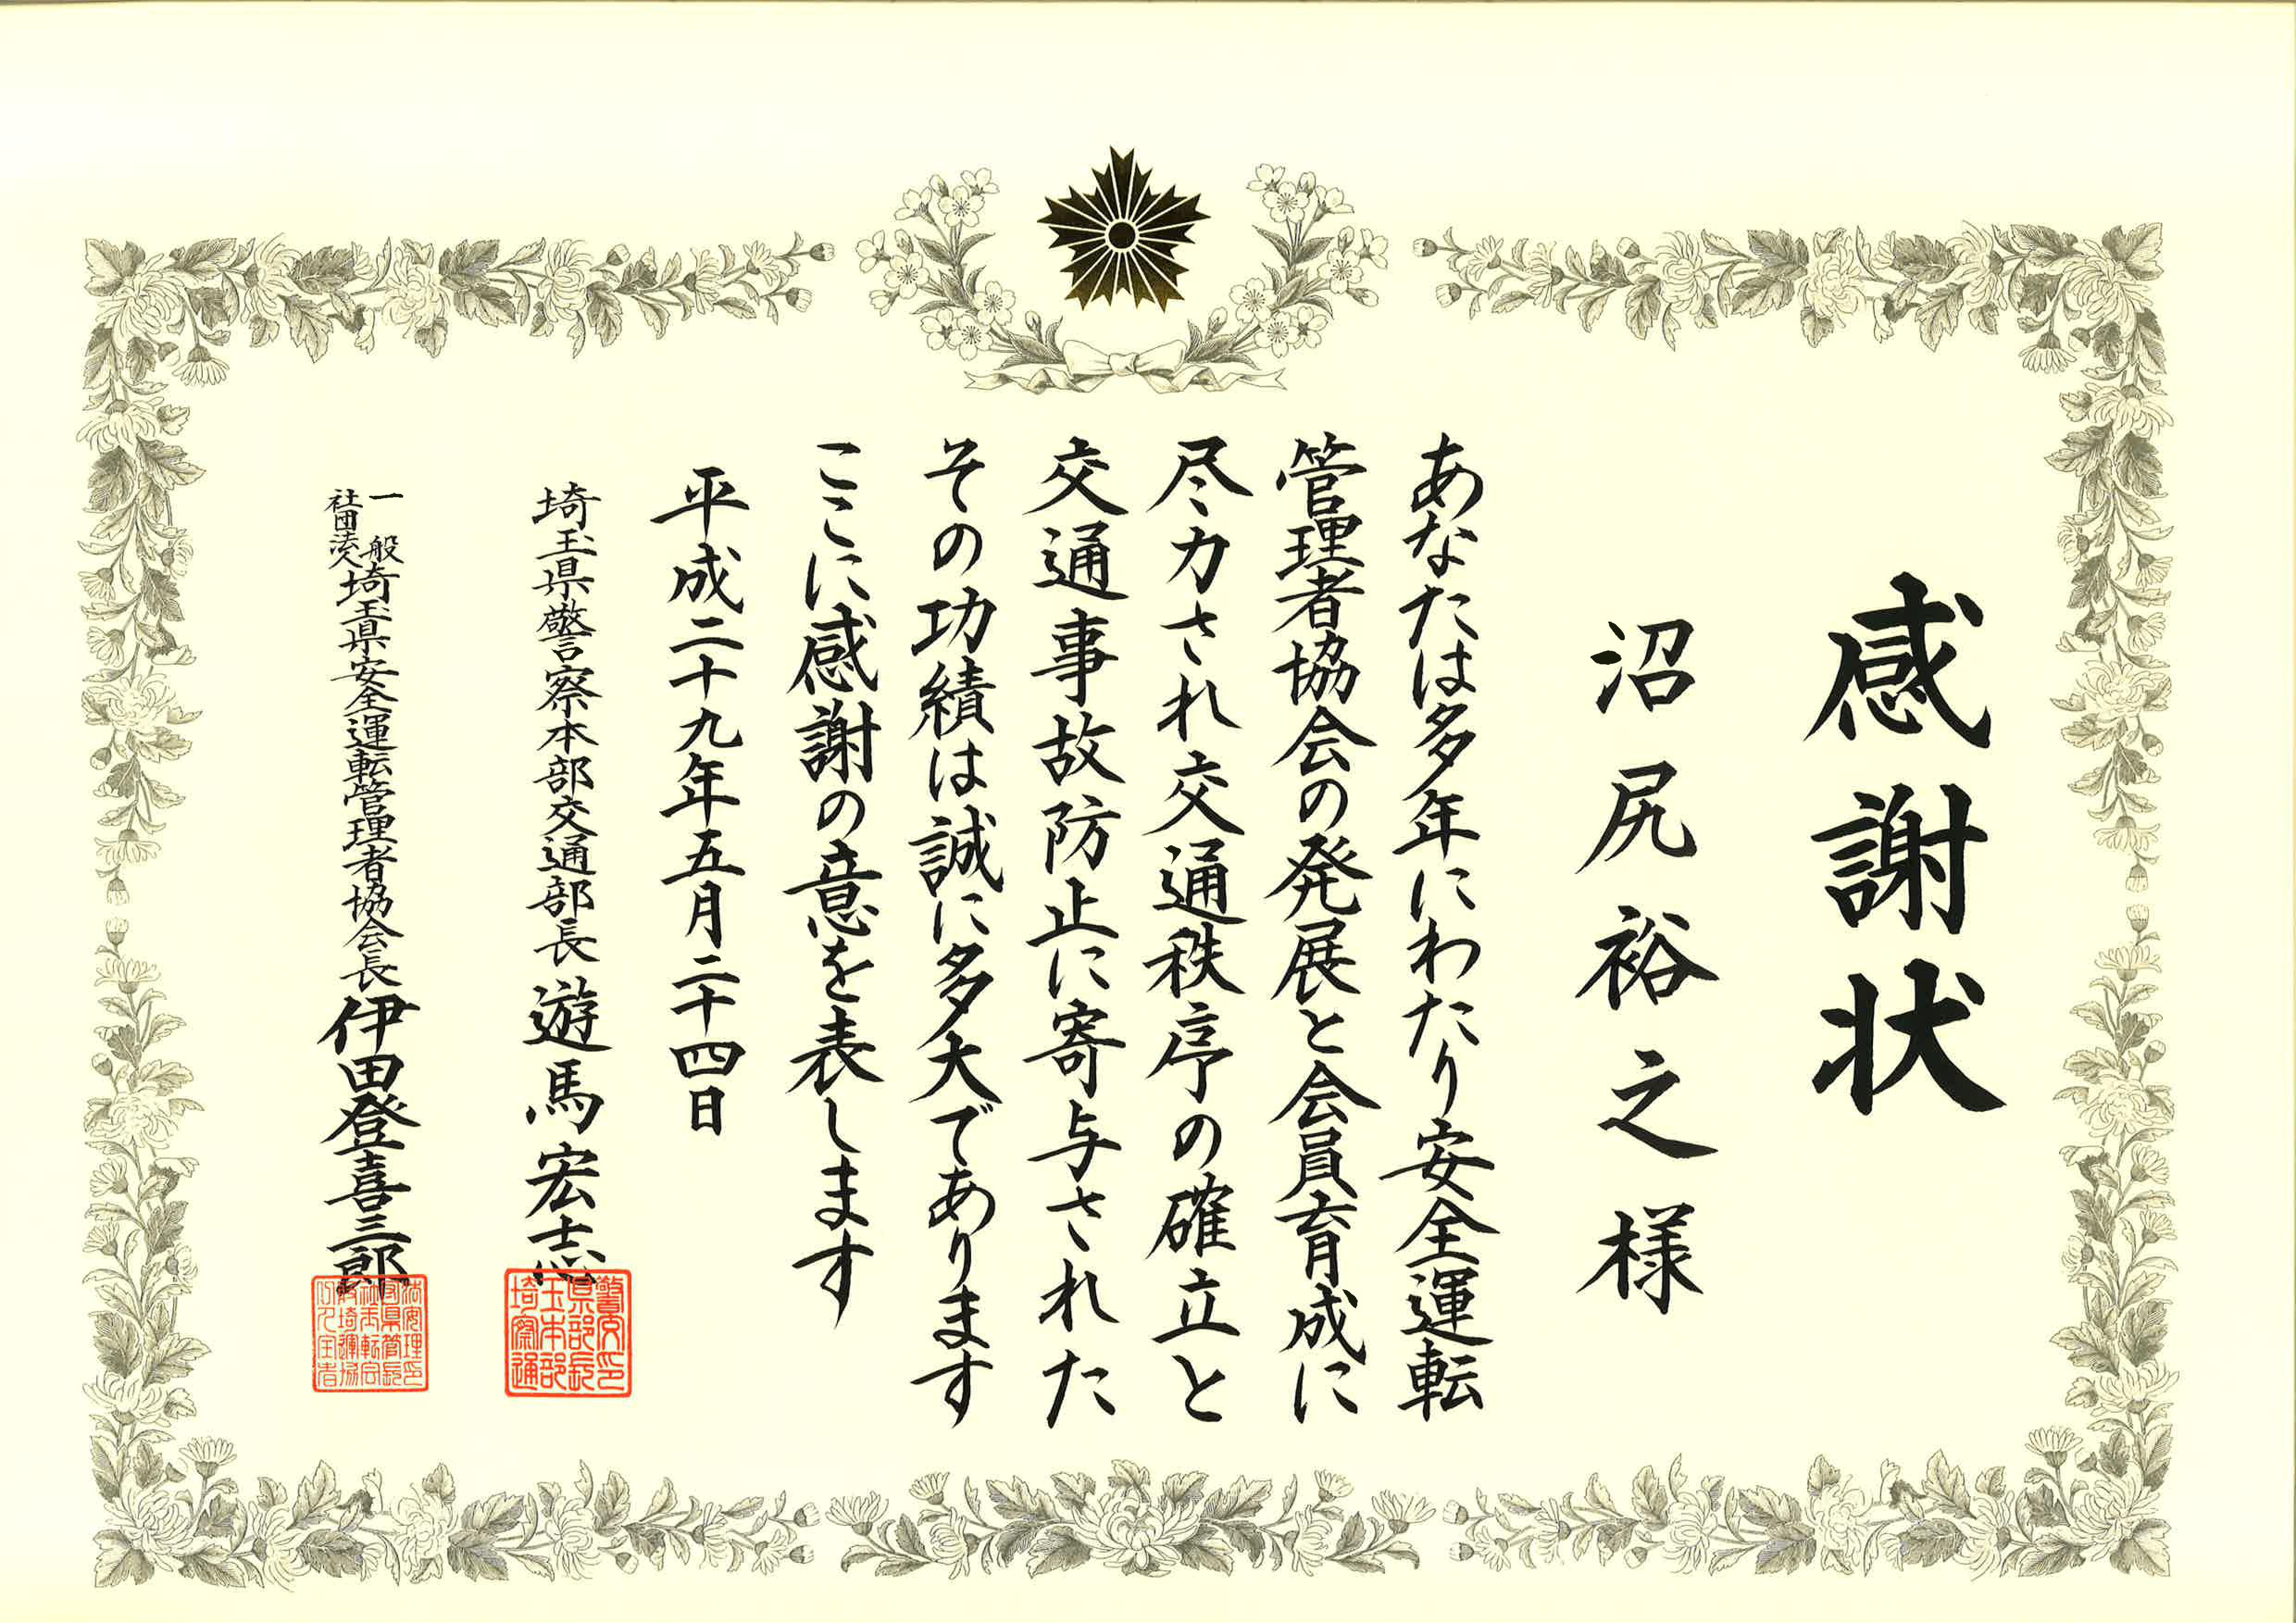 感謝状
沼尻裕之様
あなたは多年にわたり安全運転
管理者協会の発展と会員育成に
尽力され交通秩序の確立と
交通事故防止に寄与された
その功績は誠に多大であります
ここに感謝の意を表します
平成二十九年五月二十四日
埼玉県警察本部交通部長 遊馬宏志
一般社団法人埼玉県安全運転管理者協会長 伊田登喜三郎
埼玉県警察本部交通部長印